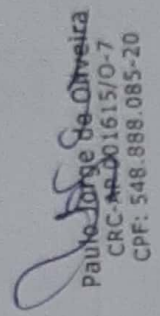 Paulo Jorge de Oliveira
CRC-AP 001615/O-7
CPF: 548.888.085-20